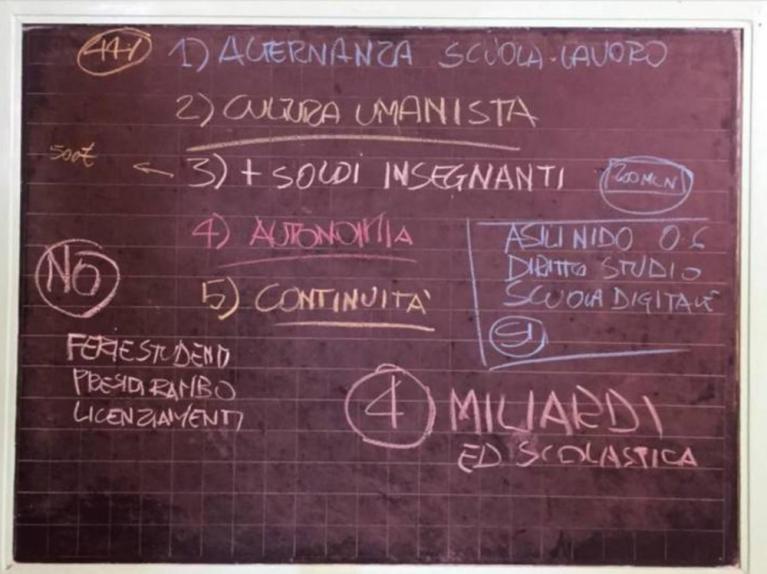 44% 1) ALTERNANZA SCUOLA-LAVORO
2) CULTURA UMANISTA
500€ ← 3) + SOLDI INSEGNANTI 200 MLN
4) AUTONOMIA
5) CONTINUITÀ
ASILI NIDO 0-6
DIRITTO STUDIO
SCUOLA DIGITALE
SI
NO
FERIE STUDENTI
PRESIDI RAMBO
LICENZIAMENTI
4 MILIARDI
ED SCOLASTICA